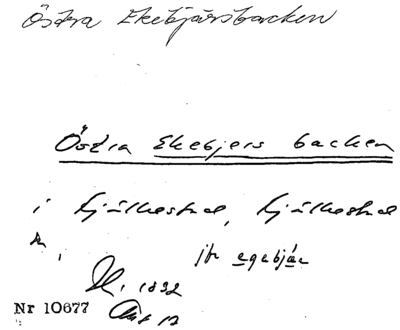 Östra Ekebjärsbacken
Östra Ekebjers backen
i Kjulkestad, Kjulkestad
jfr egebjär
1892
Nr 10677